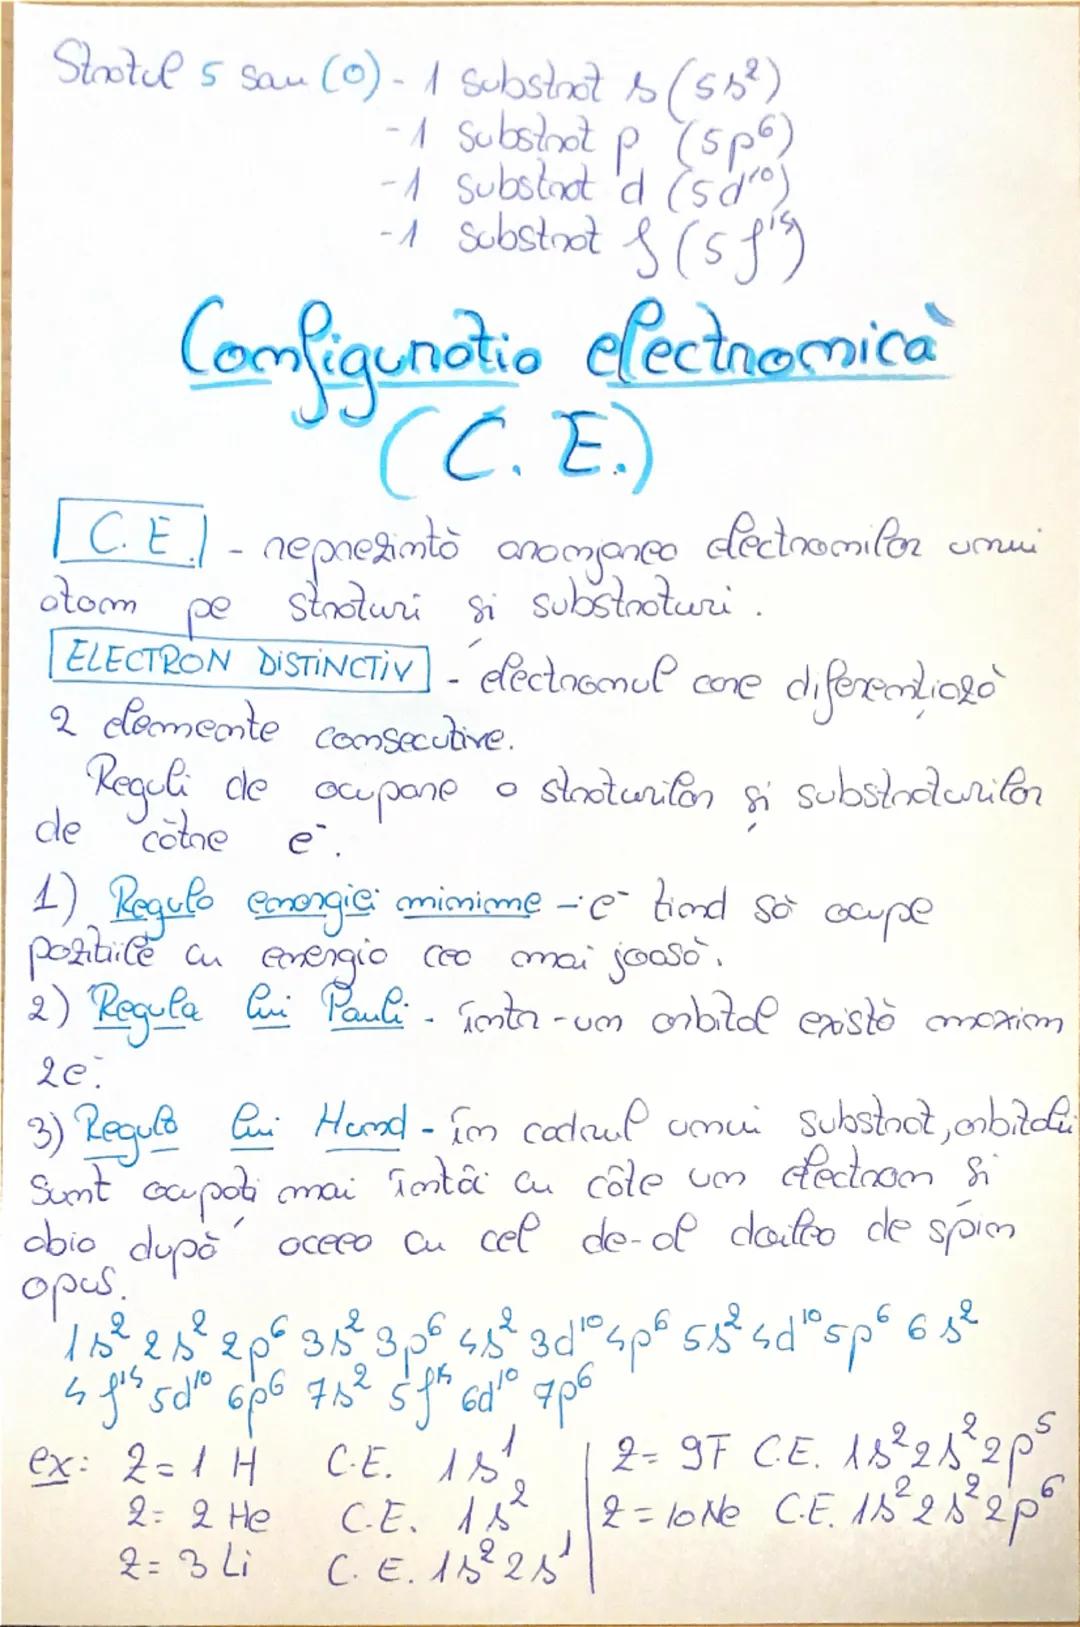 Stratul 5 sau (O) - 1 substrat s (5s²)
- 1 substrat p (5p⁶)
- 1 substrat d (5d¹⁰)
- 1 substrat f (5f¹⁴)
Configurația electronică
(C. E.)
C. E. - reprezintă aranjarea electronilor unui
atom pe straturi și substraturi.
ELECTRON DISTINCTIV - electronul care diferențiază
2 elemente consecutive.
Reguli de ocupare a straturilor și substraturilor
de către e⁻.
1) Regula energiei minime - e⁻ tind să ocupe
pozițiile cu energia cea mai joasă.
2) Regula lui Pauli - într-un orbital există maxim
2e⁻.
3) Regula lui Hund - în cadrul unui substrat, orbitalii
sunt ocupați mai întâi cu câte un electron și
abia după aceea cu cel de-al doilea de spin
opus.
1s² 2s² 2p⁶ 3s² 3p⁶ 4s² 3d¹⁰ 4p⁶ 5s² 4d¹⁰ 5p⁶ 6s²
4f¹⁴ 5d¹⁰ 6p⁶ 7s² 5f¹⁴ 6d¹⁰ 7p⁶
ex: Z=1 H C.E. 1s¹ | Z= 9F C.E. 1s² 2s² 2p⁵
Z= 2 He C.E. 1s² | Z= 10Ne C.E. 1s² 2s² 2p⁶
Z= 3 Li C.E. 1s² 2s¹